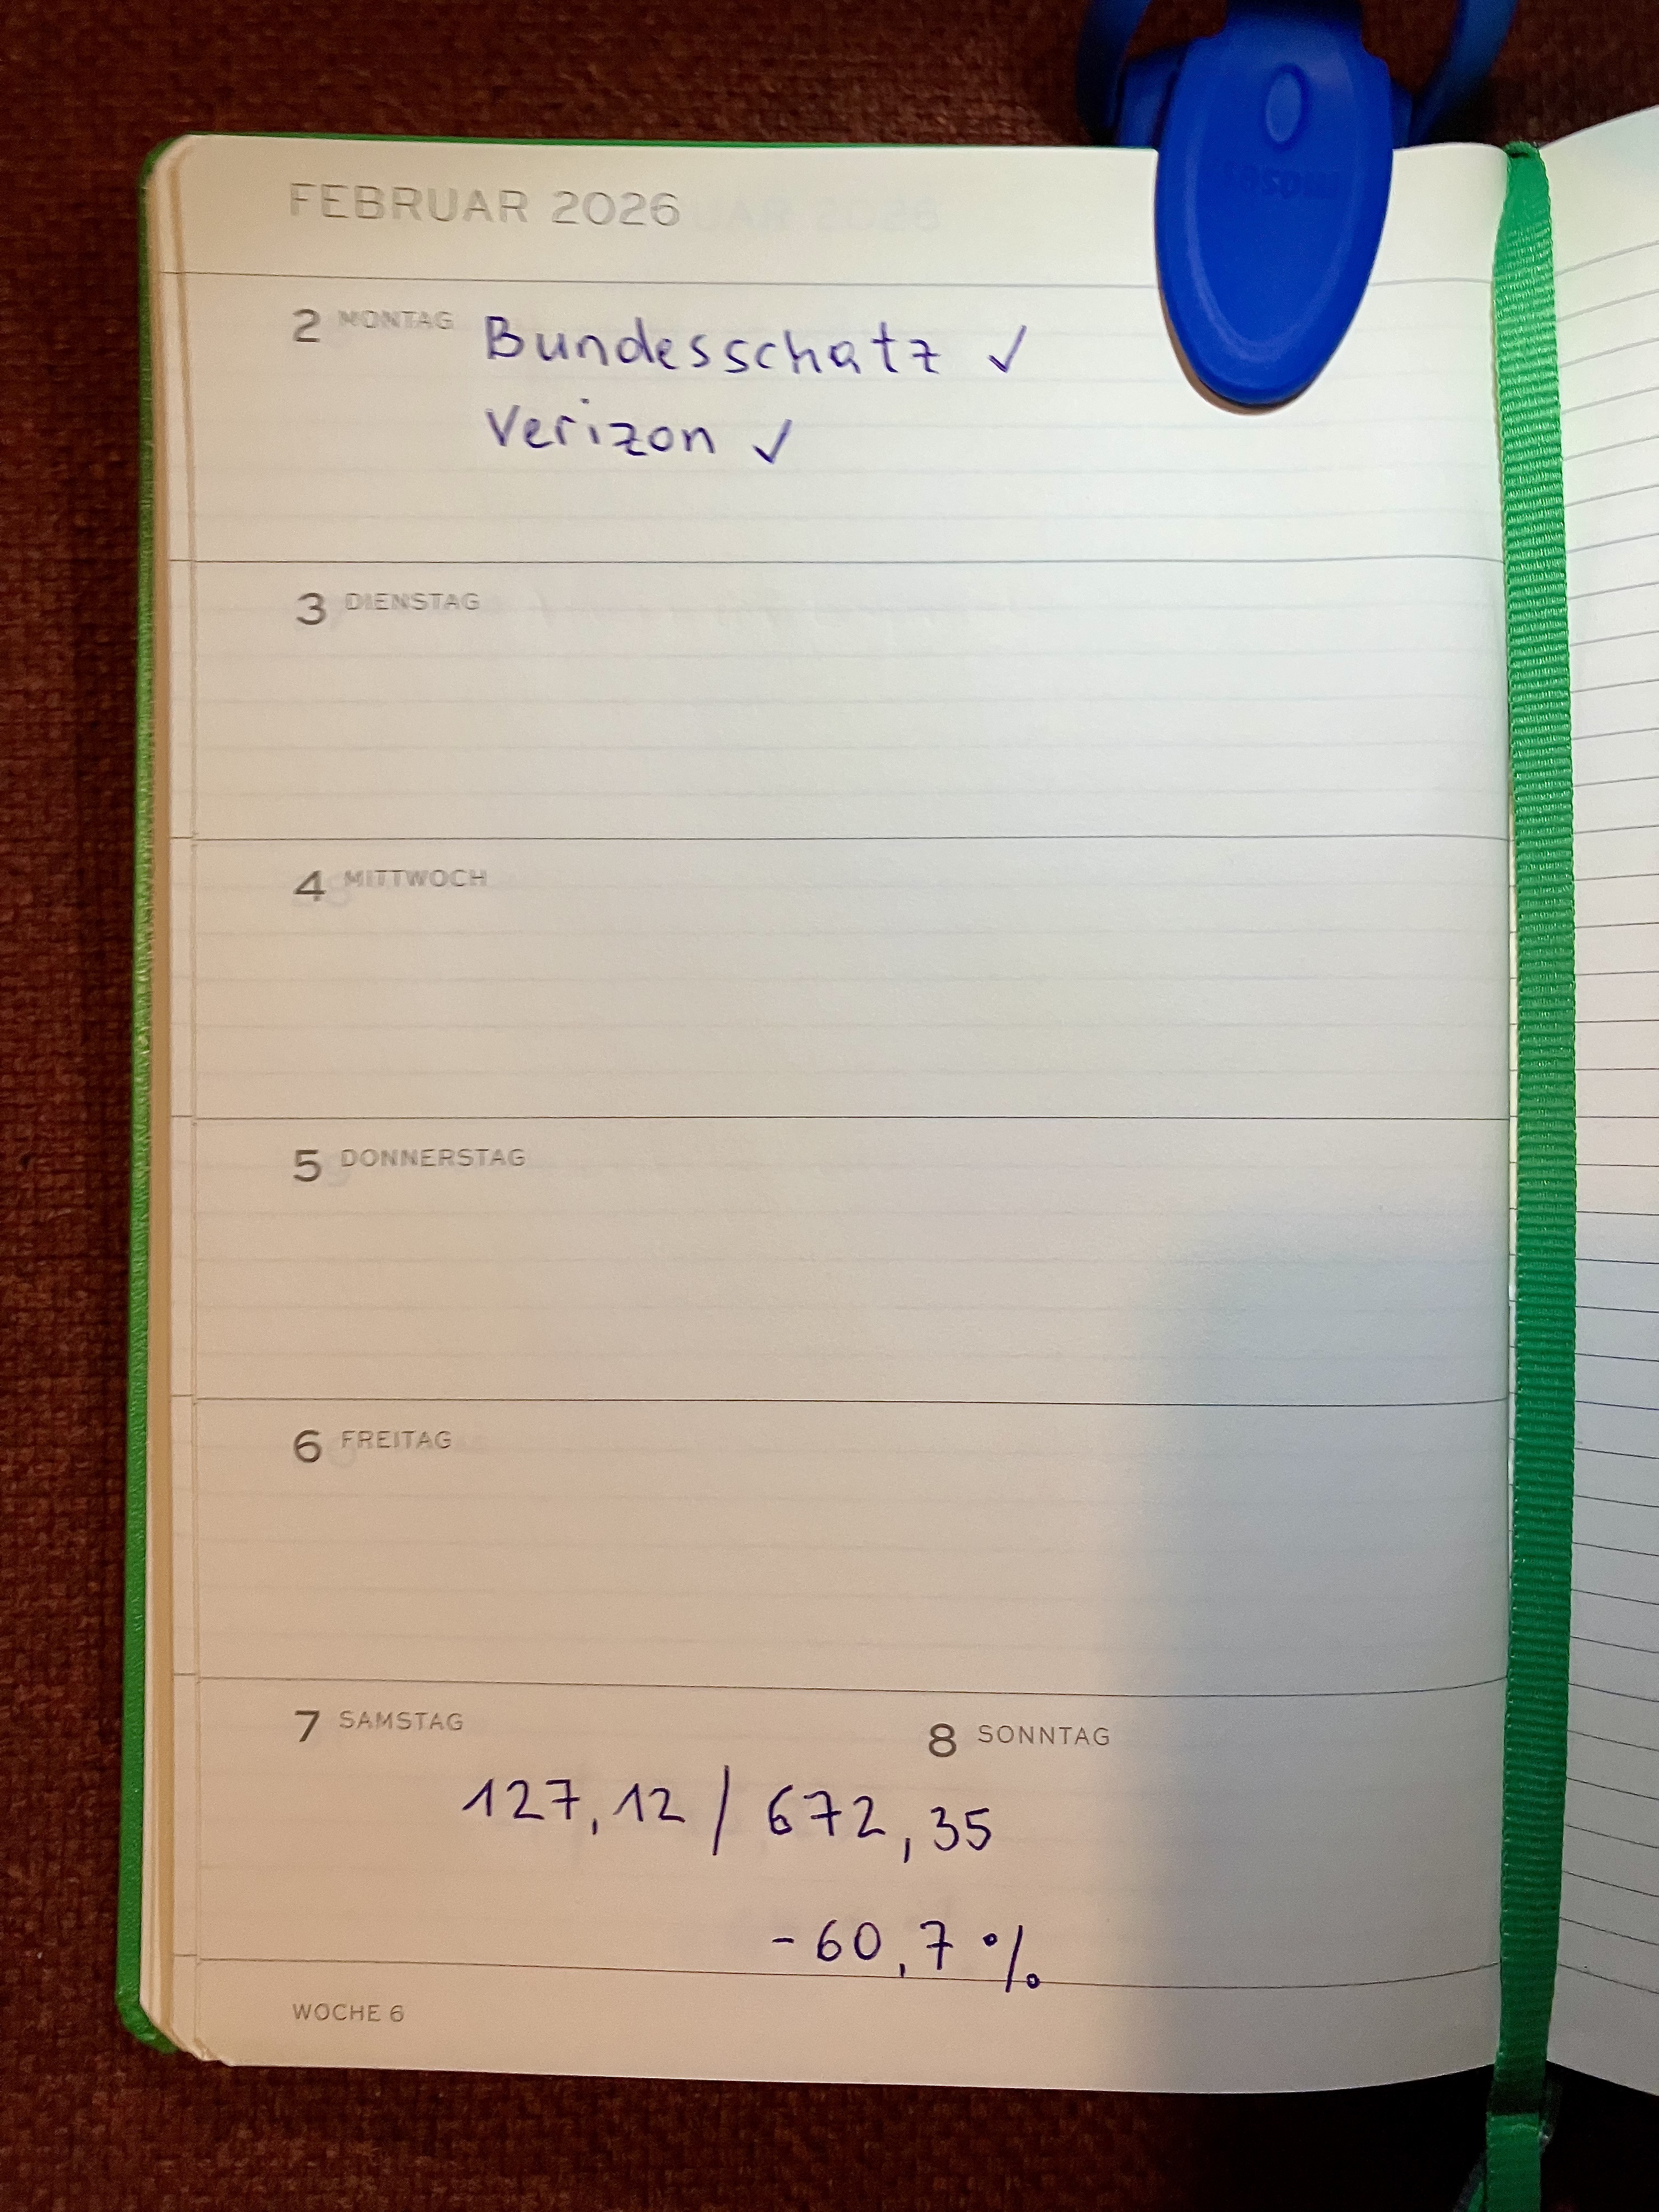 FEBRUAR 2026
2 MONTAG Bundesschatz ✓
Verizon ✓
3 DIENSTAG
4 MITTWOCH
5 DONNERSTAG
6 FREITAG
7 SAMSTAG
8 SONNTAG
127,12 / 672,35
-60,7 %
WOCHE 6